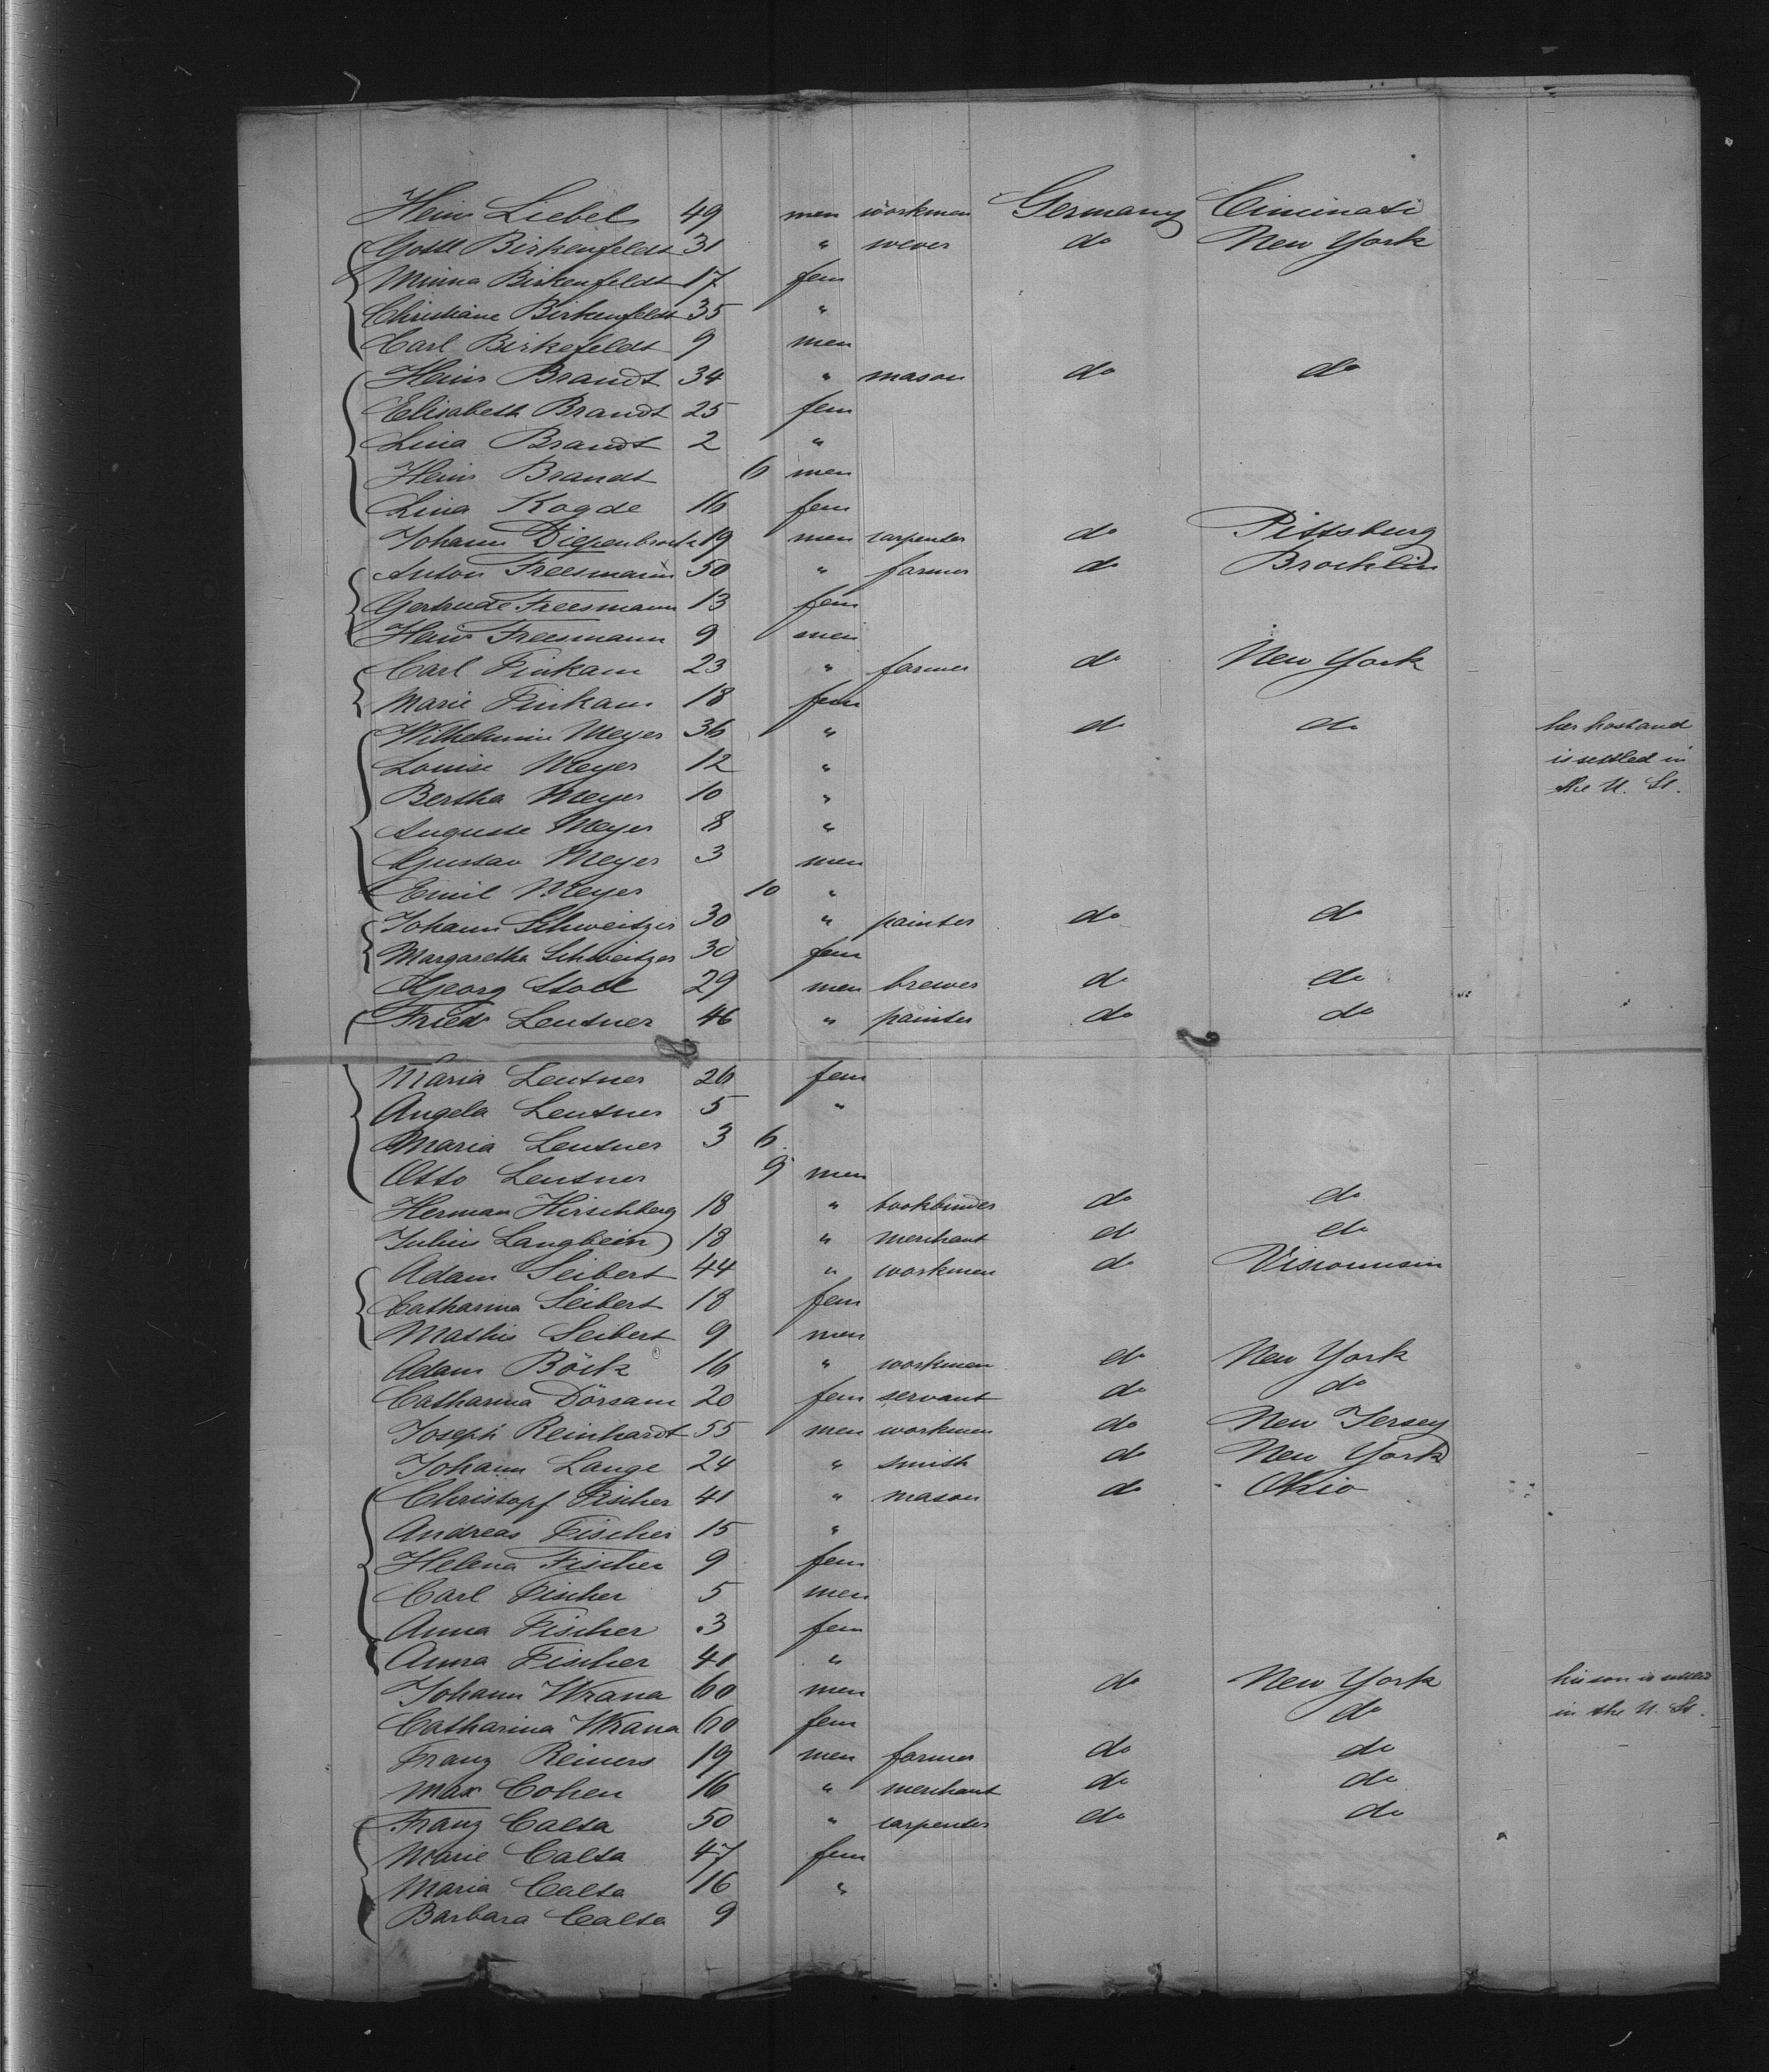 Heinr Liebel 49 men workmen Germany Cincinati
Gottl Birkenfeldt 31 " wever do New York
Minna Birkenfeldt 17 fem
Christiane Birkenfeldt 35 "
Carl Birkefeldt 9 men
Heinr Brandt 34 " mason do do
Elisabeth Brandt 25 fem
Lina Brandt 2 "
Heinr Brandt 6 men
Lina Kogde 16 fem
Johann Diepenbrock 19 men carpenter do Pittsburg
Anton Freesmann 50 " farmer do Brocklin
Gertrude Freesmann 13 fem
Heinr Freesmann 9 men
Carl Finkam 23 " farmer do New York
Marie Finkam 18 fem
Wilhelmine Meyer 36 " do do her hosband
Louise Meyer 12 " is settled in
Bertha Meyer 10 " the U. St.
Auguste Meyer 8 "
Gustav Meyer 3 men
Emil Meyer 10 "
Johann Schweitzer 30 " painter do do
Margaretha Schweitzer 30 fem
Georg Stoll 29 men brewer do do
Friedr Leutner 46 " painter do do
Maria Leutner 26 fem
Angela Leutner 5 "
Maria Leutner 3 6
Otto Leutner 9 men
Herman Hirschberg 18 " bookbinder do do
Julius Langbein 18 " merchant do do
Adam Seibert 44 " workmen do Visconnsin
Catharina Seibert 18 fem
Mathis Seibert 9 men
Adam Böck 16 " workmen do New York
Catharina Dörsam 20 fem servant do do
Joseph Reinhardt 55 men workmen do New Jersey
Johann Lange 24 " smith do New York
Christopf Fischer 41 " mason do Ohio
Andreas Fischer 15 "
Helena Fischer 9 fem
Carl Fischer 5 men
Anna Fischer 3 fem
Anna Fischer 41 "
Johann Wrana 60 men do New York his son is settled
Catharina Wrana 60 fem do in the U. St.
Franz Reiners 19 men farmer do do
Max Cohen 16 " merchant do do
Franz Calta 50 " carpenter do do
Marie Calta 47 fem
Maria Calta 16 "
Barbara Calta 9